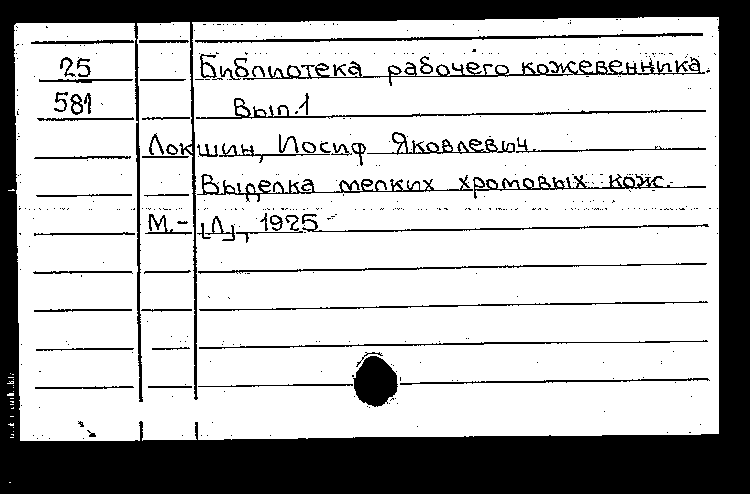 25 Библиотека рабочего кожевенника.
581 Вып.1
Локшин, Иосиф Яковлевич.
Выделка мелких хромовых кож.
М.-[Л], 1925